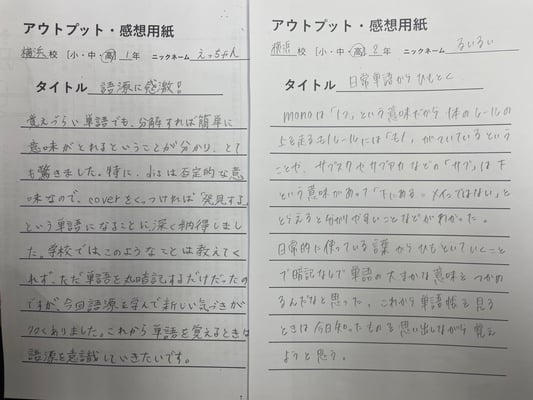 アウトプット・感想用紙
横浜校 [小・中・高] 1年 ニックネーム えっちゃん
タイトル 語源に感激!!
覚えづらい単語でも、分解すれば簡単に
意味がとれるということが分かり、とて
も驚きました。特に、disは否定的な意
味なので、coverをくっつければ「発見する」
という単語になることに深く納得しまし
た。学校ではこのようなことは教えてく
れず、ただ単語を丸暗記するだけだったの
ですが、今回語源を学んで新しい気づきが
沢くありました。これから単語を覚えるときは
語源を意識していきたいです。
アウトプット・感想用紙
横浜校 [小・中・高] 2年 ニックネーム るいるい
タイトル 日常単語からひもとく
monoは「1つ」という意味だから1本のレールの
上を走るモノレールには「モノ」がついているという
ことや、サブスクやサブアカなどの「サブ」は下
という意味があって「下にある=メインではない」と
捉えると分かりやすいことなどがわかった。
日常的に使っている言葉からひもといていくこと
で暗記なしで単語の大まかな意味をつかめ
るんだなと思った。これから単語帳を見る
ときは今日知ったものを思い出しながら覚え
ようと思う。